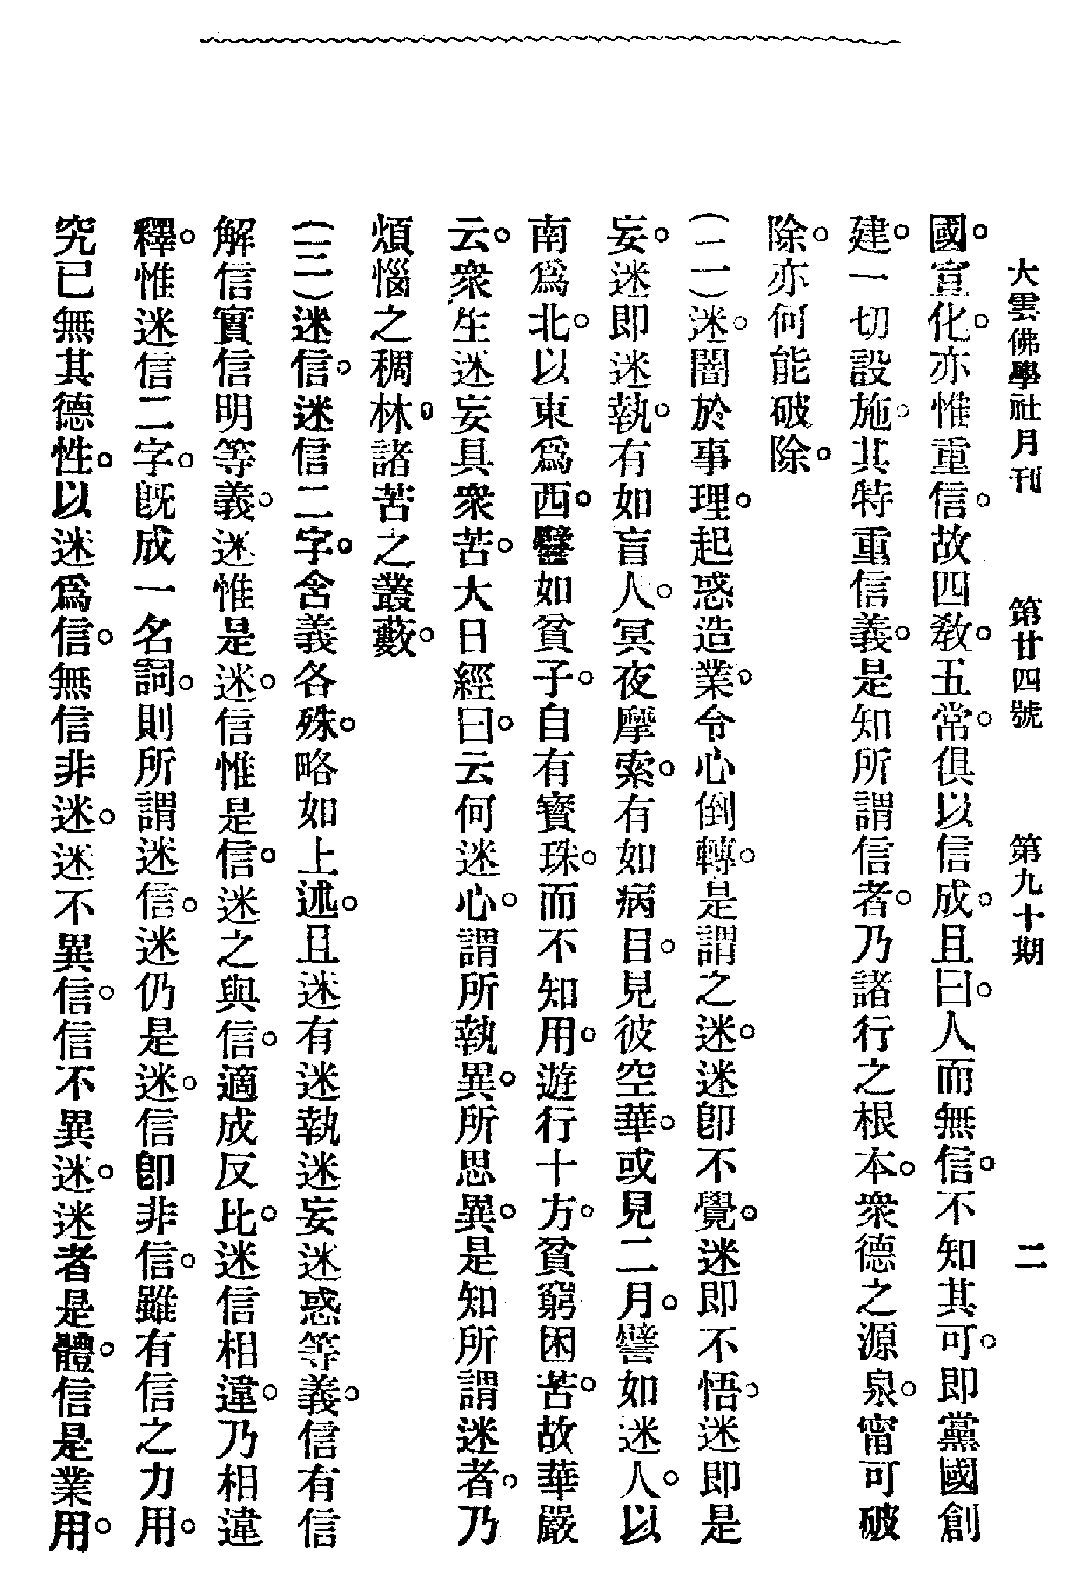 大雲佛學社月刊　第廿四號　第九十期　二
國。宣化。亦惟重信。故四教。五常。俱以信成。且曰。人而無信。不知其可。即黨國創
建。一切設施。其特重信義。是知所謂信者。乃諸行之根本。衆德之源泉。甯可破
除。亦何能破除。
（二）迷。闇於事理。起惑造業。令心倒轉。是謂之迷。迷卽不覺。迷卽不悟。迷卽是
妄。迷即迷執。有如盲人。冥夜摩索。有如病目。見彼空華。或見二月。譬如迷人。以
南爲北。以東爲西。譬如貧子。自有寶珠。而不知用。遊行十方。貧窮困苦。故華嚴
云。衆生迷妄具衆苦。大日經曰。云何迷心。謂所執異。所思異。是知所謂迷者。乃
煩惱之稠林。諸苦之叢藪。
（三）迷信。迷信二字。含義各殊。略如上述。且迷有迷執迷妄迷惑等義。信有信
解信實信明等義。迷惟是迷。信惟是信。迷之與信。適成反比。迷信相違。乃相違
釋。惟迷信二字。旣成一名詞。則所謂迷信。迷仍是迷。信卽非信。雖有信之力用。
究已無其德性。以迷爲信。無信非迷。迷不異信。信不異迷。迷者是體。信是業用。